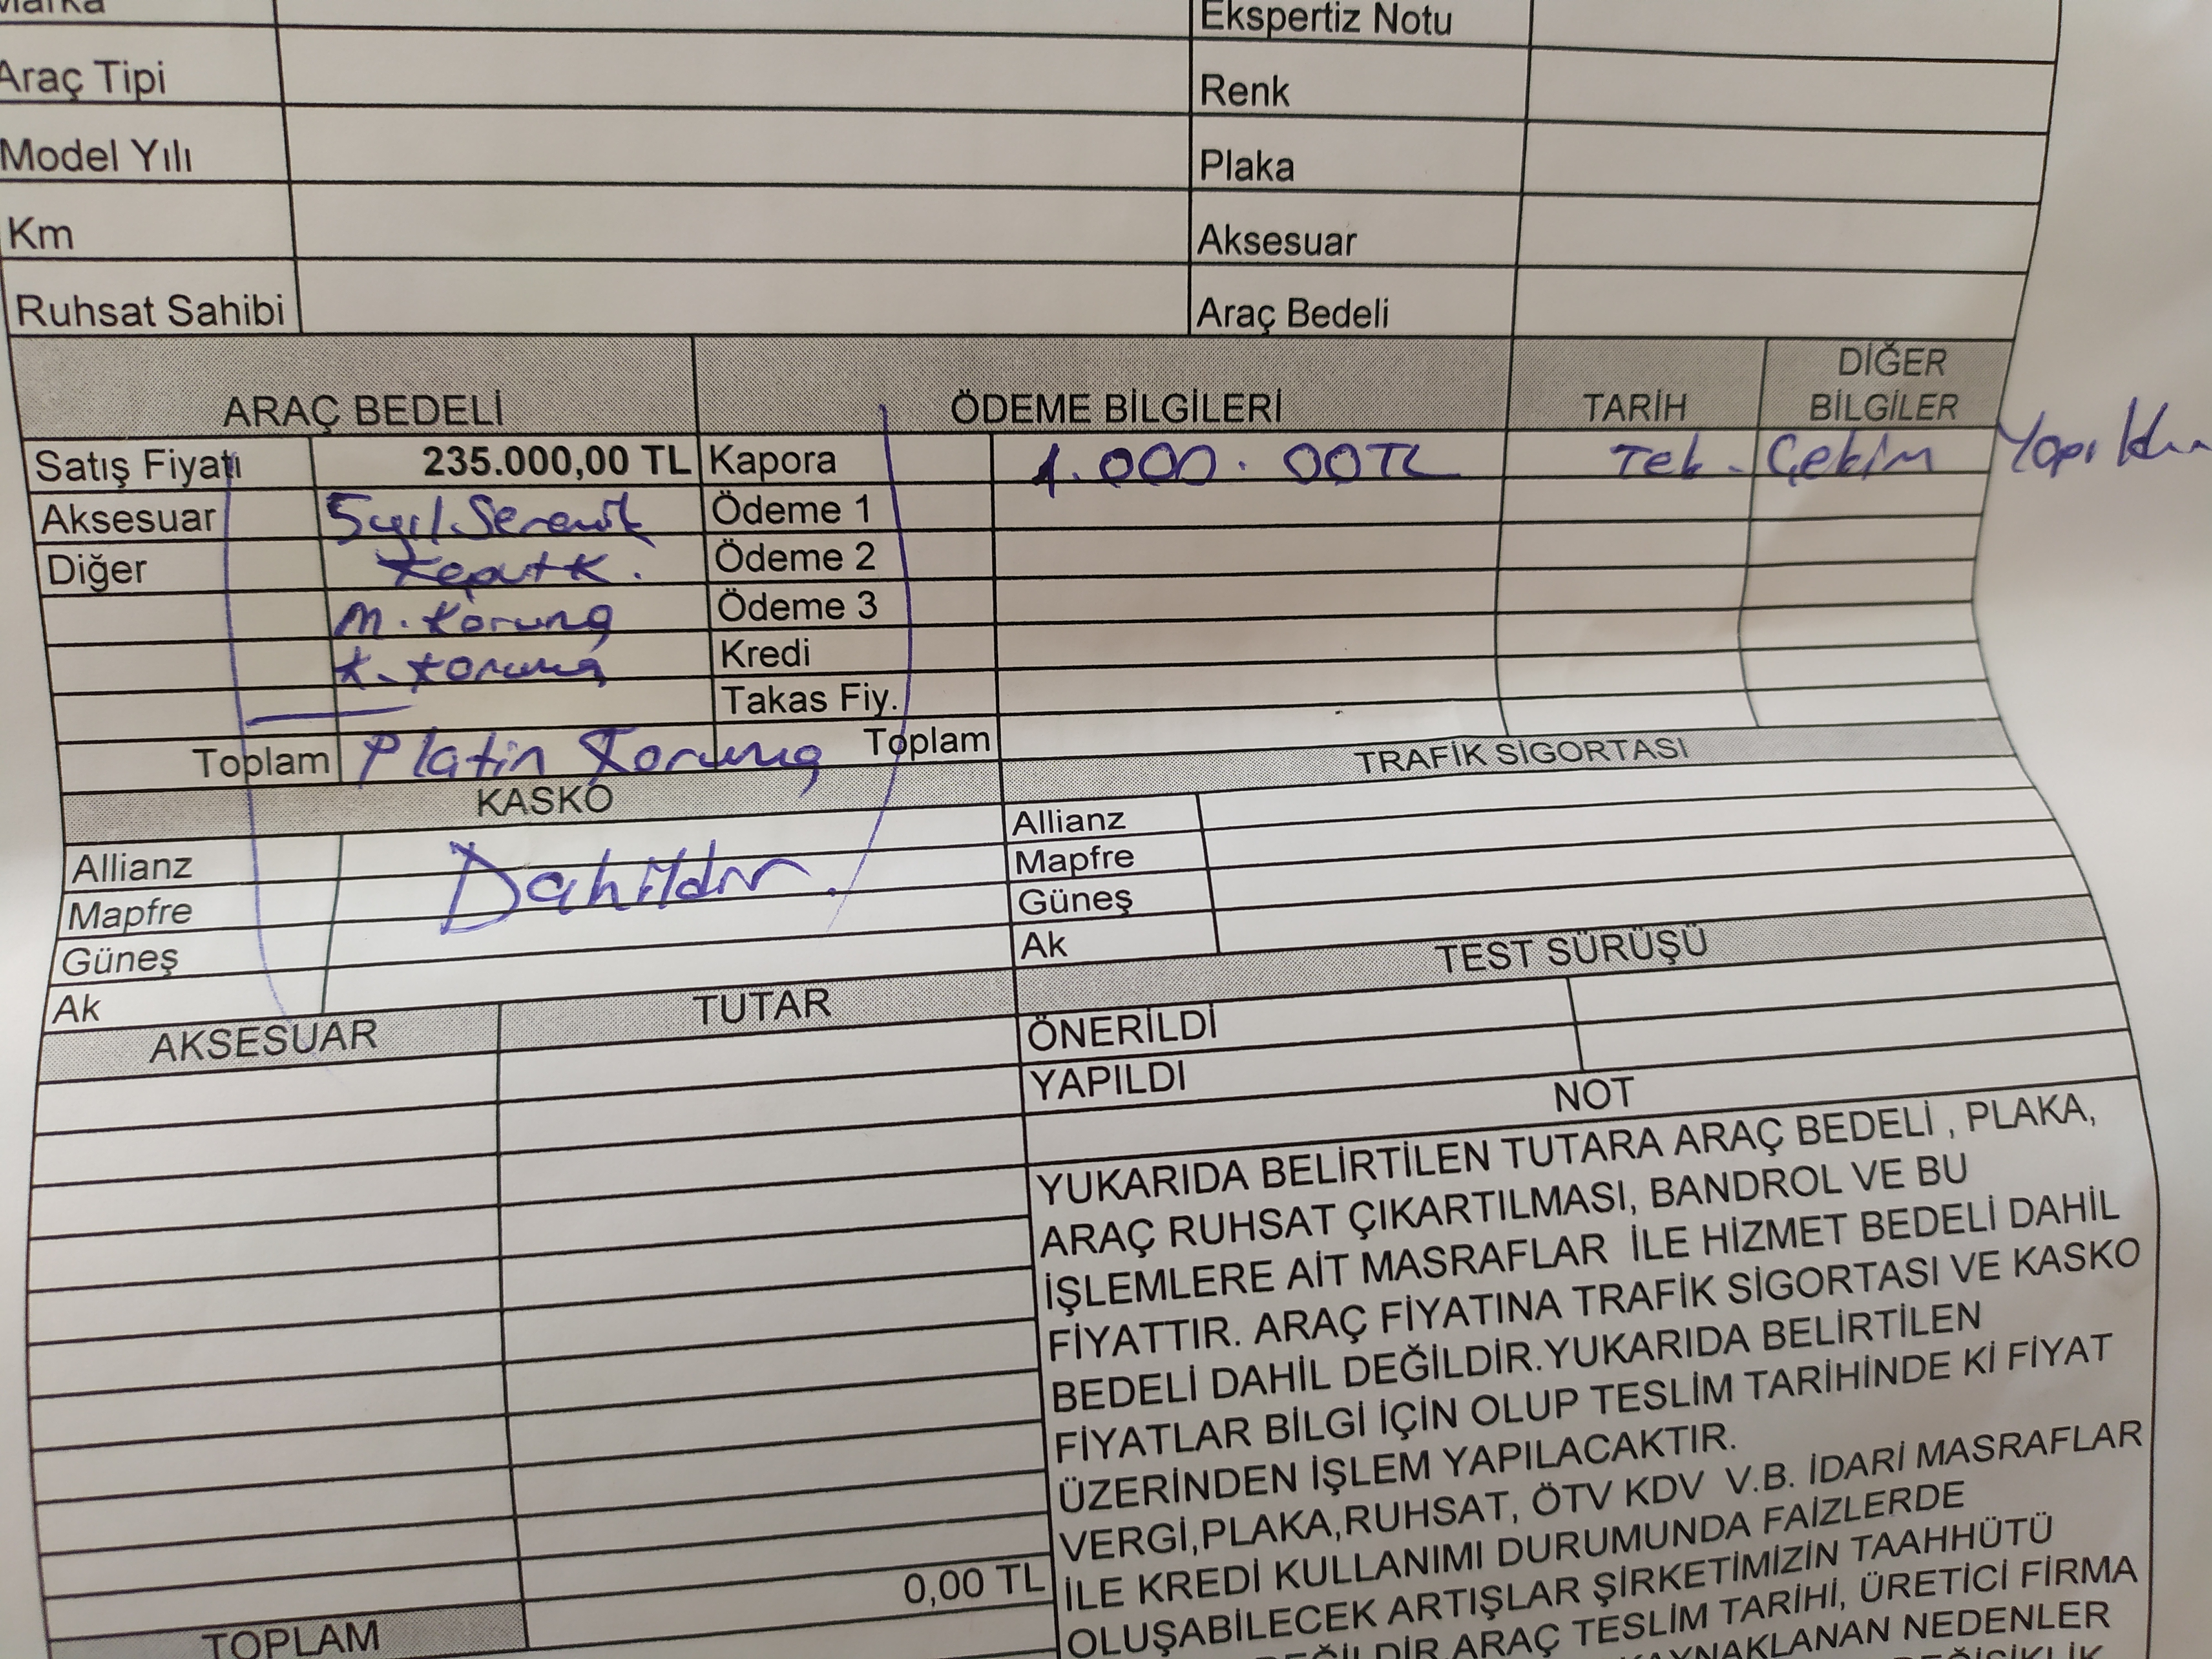 Marka Ekspertiz Notu
Araç Tipi Renk
Model Yılı Plaka
Km Aksesuar
Ruhsat Sahibi Araç Bedeli
ARAÇ BEDELİ ÖDEME BİLGİLERİ TARİH DİĞER BİLGİLER
Satış Fiyatı 235.000,00 TL Kapora 1.000.00TL Tek Çekim
Aksesuar 5yıl Seramik Ödeme 1
Diğer Ödeme 2
M. Koruma Ödeme 3
K. Koruma Kredi
Takas Fiy.
Toplam Platin Koruma Toplam
KASKO TRAFİK SİGORTASI
Allianz Dahildir. Allianz
Mapfre Mapfre
Güneş Güneş
Ak Ak
AKSESUAR TUTAR TEST SÜRÜŞÜ
ÖNERİLDİ
YAPILDI
NOT
YUKARIDA BELİRTİLEN TUTARA ARAÇ BEDELİ , PLAKA,
ARAÇ RUHSAT ÇIKARTILMASI, BANDROL VE BU
İŞLEMLERE AİT MASRAFLAR İLE HİZMET BEDELİ DAHİL
FİYATTIR. ARAÇ FİYATINA TRAFİK SİGORTASI VE KASKO
BEDELİ DAHİL DEĞİLDİR.YUKARIDA BELİRTİLEN
FİYATLAR BİLGİ İÇİN OLUP TESLİM TARİHİNDE Kİ FİYAT
ÜZERİNDEN İŞLEM YAPILACAKTIR.
VERGİ,PLAKA,RUHSAT, ÖTV KDV V.B. İDARİ MASRAFLAR
İLE KREDİ KULLANIMI DURUMUNDA FAİZLERDE
OLUŞABİLECEK ARTIŞLAR ŞİRKETİMİZİN TAAHHÜTÜ
ARAÇ TESLİM TARİHİ, ÜRETİCİ FİRMA
KAYNAKLANAN NEDENLER
TOPLAM 0,00 TL